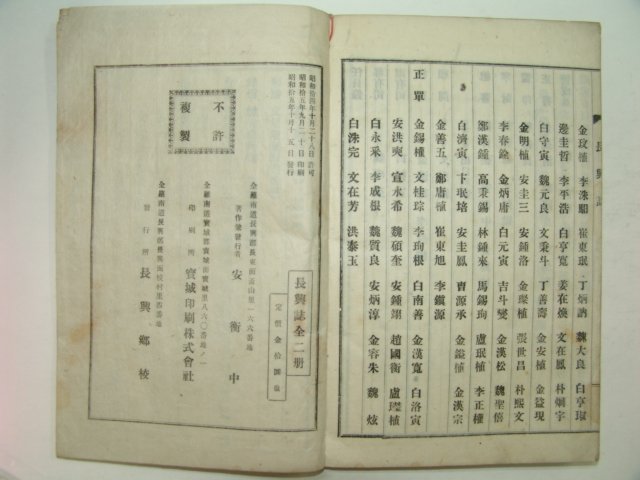 長興誌
金玟植 李洙馹 崔東珉 丁炳訥 魏大良 白亨琡
邊圭哲 李平浩 白亨寬 姜在煥 文在鳳 朴烱宇
白守寅 魏元良 文秉斗 丁善壽 金安植 金益現
金明植 安圭三 安鍾洛 金璨植 張世昌 朴熙文
李春銓 金炳庸 白元寅 吉斗燮 金漢松 魏聖僖
鄭漢鍾 高秉錫 林鍾來 馬錫珣 盧珉植 李正權
白濟寅 卞珉培 安圭鳳 曺源承 金鎰植 金漢宗
金善五 鄭庸植 崔東旭 李鎭源
正單 金錫權 文桂琮 李珣根 白南善 金漢寬 白洛寅
安洪奭 宣永希 魏碩奎 安鍾翊 趙國衡 盧璡植
白永采 李成根 魏質良 安炳淳 金容朱 魏炫
白洙完 文在芳 洪泰玉
昭和拾四年十月二十八日許可
昭和拾五年九月二十日印刷
昭和拾五年十月十五日發行
不許
複製
全羅南道長興郡長東面
著作兼發行者 安衡中
全羅南道寶城郡寶城面寶城里八六〇番地ノ一
印刷所 寶城印刷株式會社
全羅南道長興郡長興面校村里四番地
發行所 長興鄉校
長興誌全二册
定價金拾圓